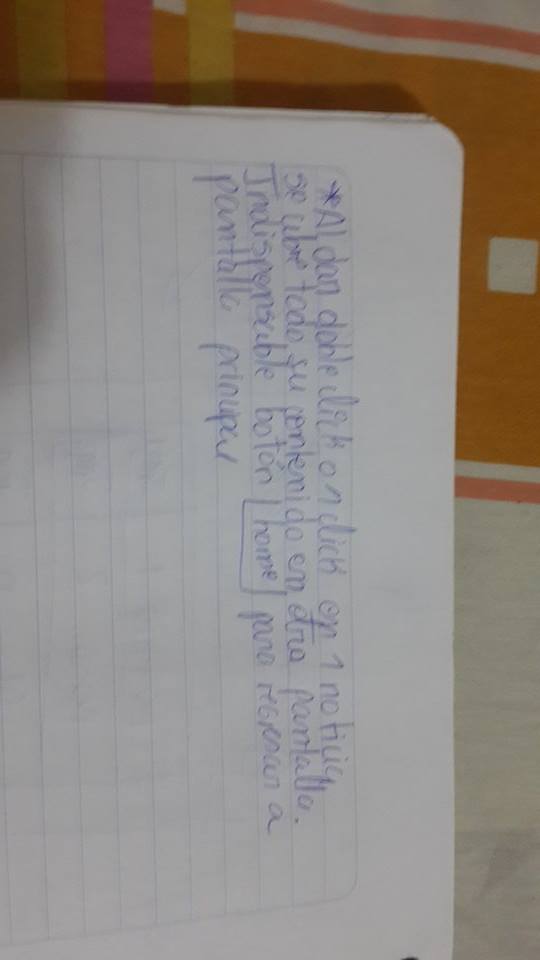 *Al dar doble click on click en 1 noticia
se abre todo su contenido en otra pantalla.
Indispensable botón home para regresar a
pantalla principal